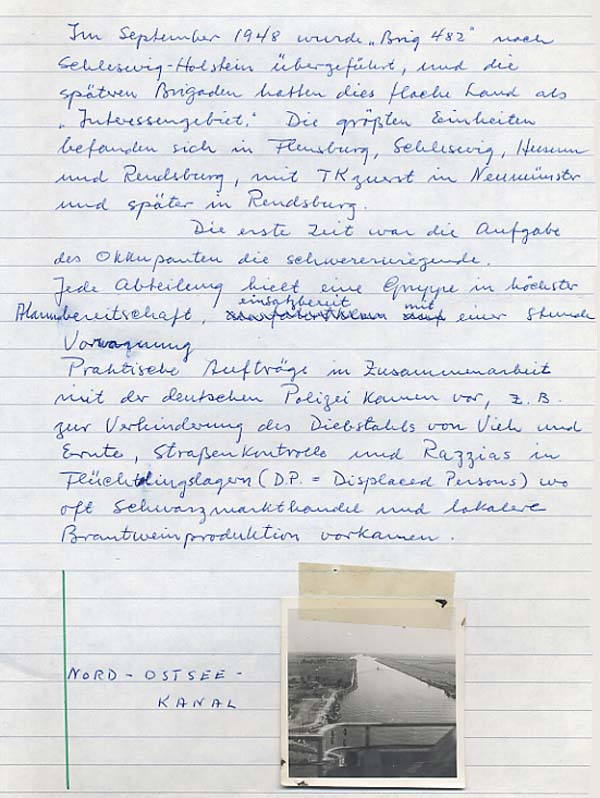 Im September 1948 wurde „Brig 482" nach
Schleswig-Holstein übergeführt, und die
späteren Brigaden hatten dies flache Land als
„Interessengebiet." Die größten Einheiten
befanden sich in Flensburg, Schleswig, Husum
und Rendsburg, mit TK zuerst in Neumünster
und später in Rendsburg.
Die erste Zeit war die Aufgabe
des Okkupanten die schwererwiegende.
Jede Abteilung hielt eine Gruppe in höchster
einsatzbereit mit
Alarmbereitschaft, einer Stunde
Vorwarnung
Praktische Aufträge in Zusammenarbeit
mit der deutschen Polizei kamen vor, z.B.
zur Verhinderung des Diebstahls von Vieh und
Ernte, Straßenkontrolle und Razzias in
Flüchtlingslagern (D.P. = Displaced Persons) wo
oft Schwarzmarkthandel und lokalere
Brantweinproduktion vorkamen.
NORD-OSTSEE-
KANAL